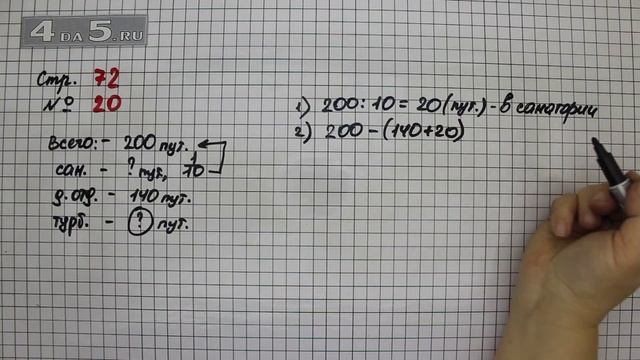 4 DA 5.RU
Стр. 72
№ 20
Всего: - 200 пут.
сан. - ? пут, 1/10
д.отд. - 140 пут.
турб. - ? пут.
1) 200 : 10 = 20 (пут.) - в санатории
2) 200 - (140+20)